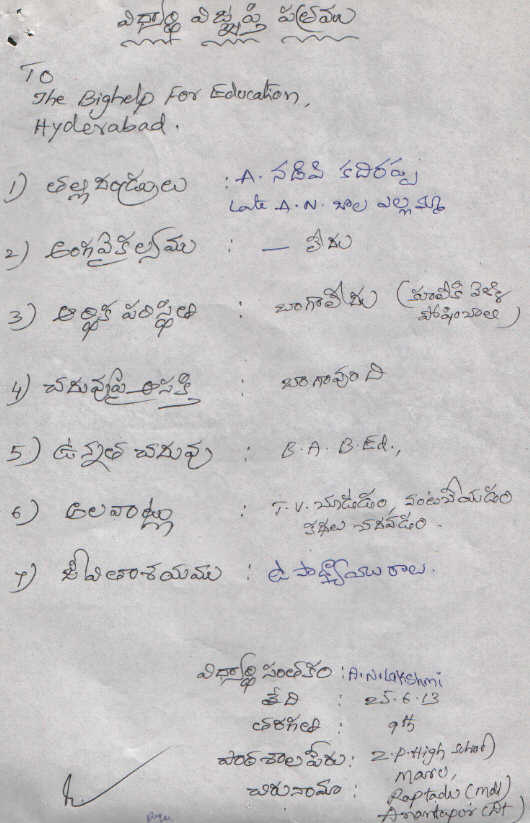 విద్యార్థి విజ్ఞప్తి పత్రము
TO
The Bighelp For Education,
Hyderabad.
1) తల్లదండ్రులు : A. నడిపి కదిరప్ప
Late A.N. బాల ఎల్లమ్మ
2) అంగవైకల్యము : — లేదు
3) ఆర్థిక పరిస్థితి : బాగాలేదు (కూలికి వెళ్ళి
పోషించాలి)
4) చదువుపై ఆసక్తి : బాగావుంది
5) ఉన్నత చదువు : B.A. B.Ed.,
6) అలవాట్లు : T.V. చూడడం, వంటచేయడం
కథలు చదవడం.
7) జీవితాశయము : ఉపాధ్యాయురాలు.
విద్యార్థి సంతకం : A.N.Lakshmi
తేది : 25.6.13
తరగతి : 9th
పాఠశాల పేరు : Z.P. High School)
చిరునామా : Raptadu (Mdl)
Anantapur (Dt)